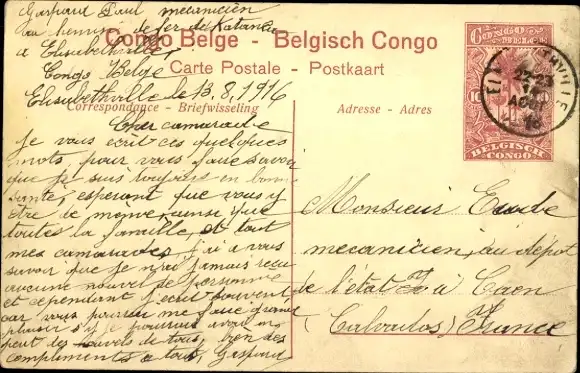 Gaspard Paul mecanicien
au chemin de fer du Katanga
a Elisabethville
Congo Belge - Belgisch Congo
Congo Belge
Carte Postale - Postkaart
Elisabethville le 13.8.1916
Correspondance - Briefwisseling
Adresse - Adres
CONGO BELGE
10
BELGISCH CONGO
22-23
14
AOUT
16
Cher camarade
Je vous ecrit ces quelques
mots, pour vous faire savoir
que je suis toujours en bonne
sante, esperant que vous y
etre de meme, ainsi que
toutes la famille, et tout
mes camarades, j'ai a vous
savoir que je n'ai jamais recu
aucune nouvel de personne
et cependant j'ecrit souvent,
car vous pourriez me faire grand
plaisir s'y je pourrais avoir un
peut les nouvels de tous, bien des
compliments a tous, Gaspard
Monsieur
mecanicien, au depot
de l'état a Caen
(Calvados) France